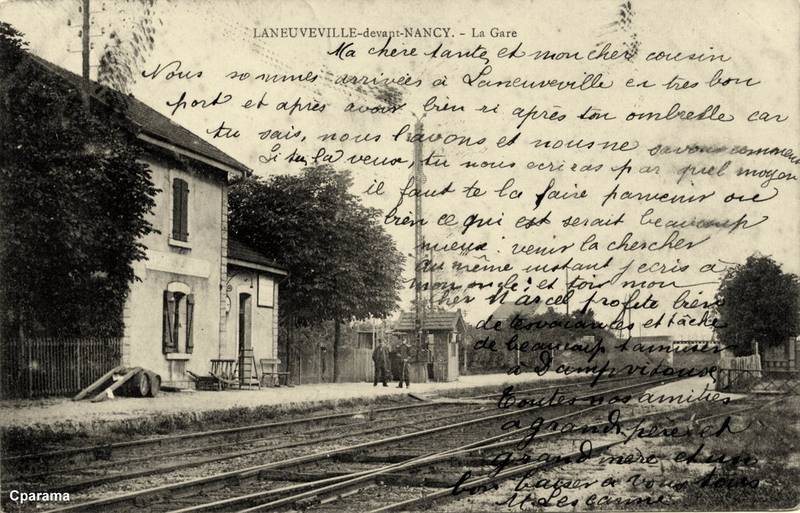 LANEUVEVILLE-devant-NANCY. - La Gare
Ma chère tante, et mon cher cousin
Nous sommes arrivées à Laneuveville en très bon
port et après avoir bien ri après ton ombrelle car
tu sais, nous l'avons et nous ne savons comment
Si tu la veux, tu nous ecriras par quel moyen
il faut te la faire parvenir ou
bien ce qui est serait beaucoup
mieux: venir la chercher
au même instant j'ecris à
mon oncle; et toi mon
cher Marcel profite bien
de tes vacances et tâche
de beaucoup t'amuser
à
Toutes nos amitiés
a grand père et
grand mère et un
bon baiser à vous tous
M. Lescanne
Cparama